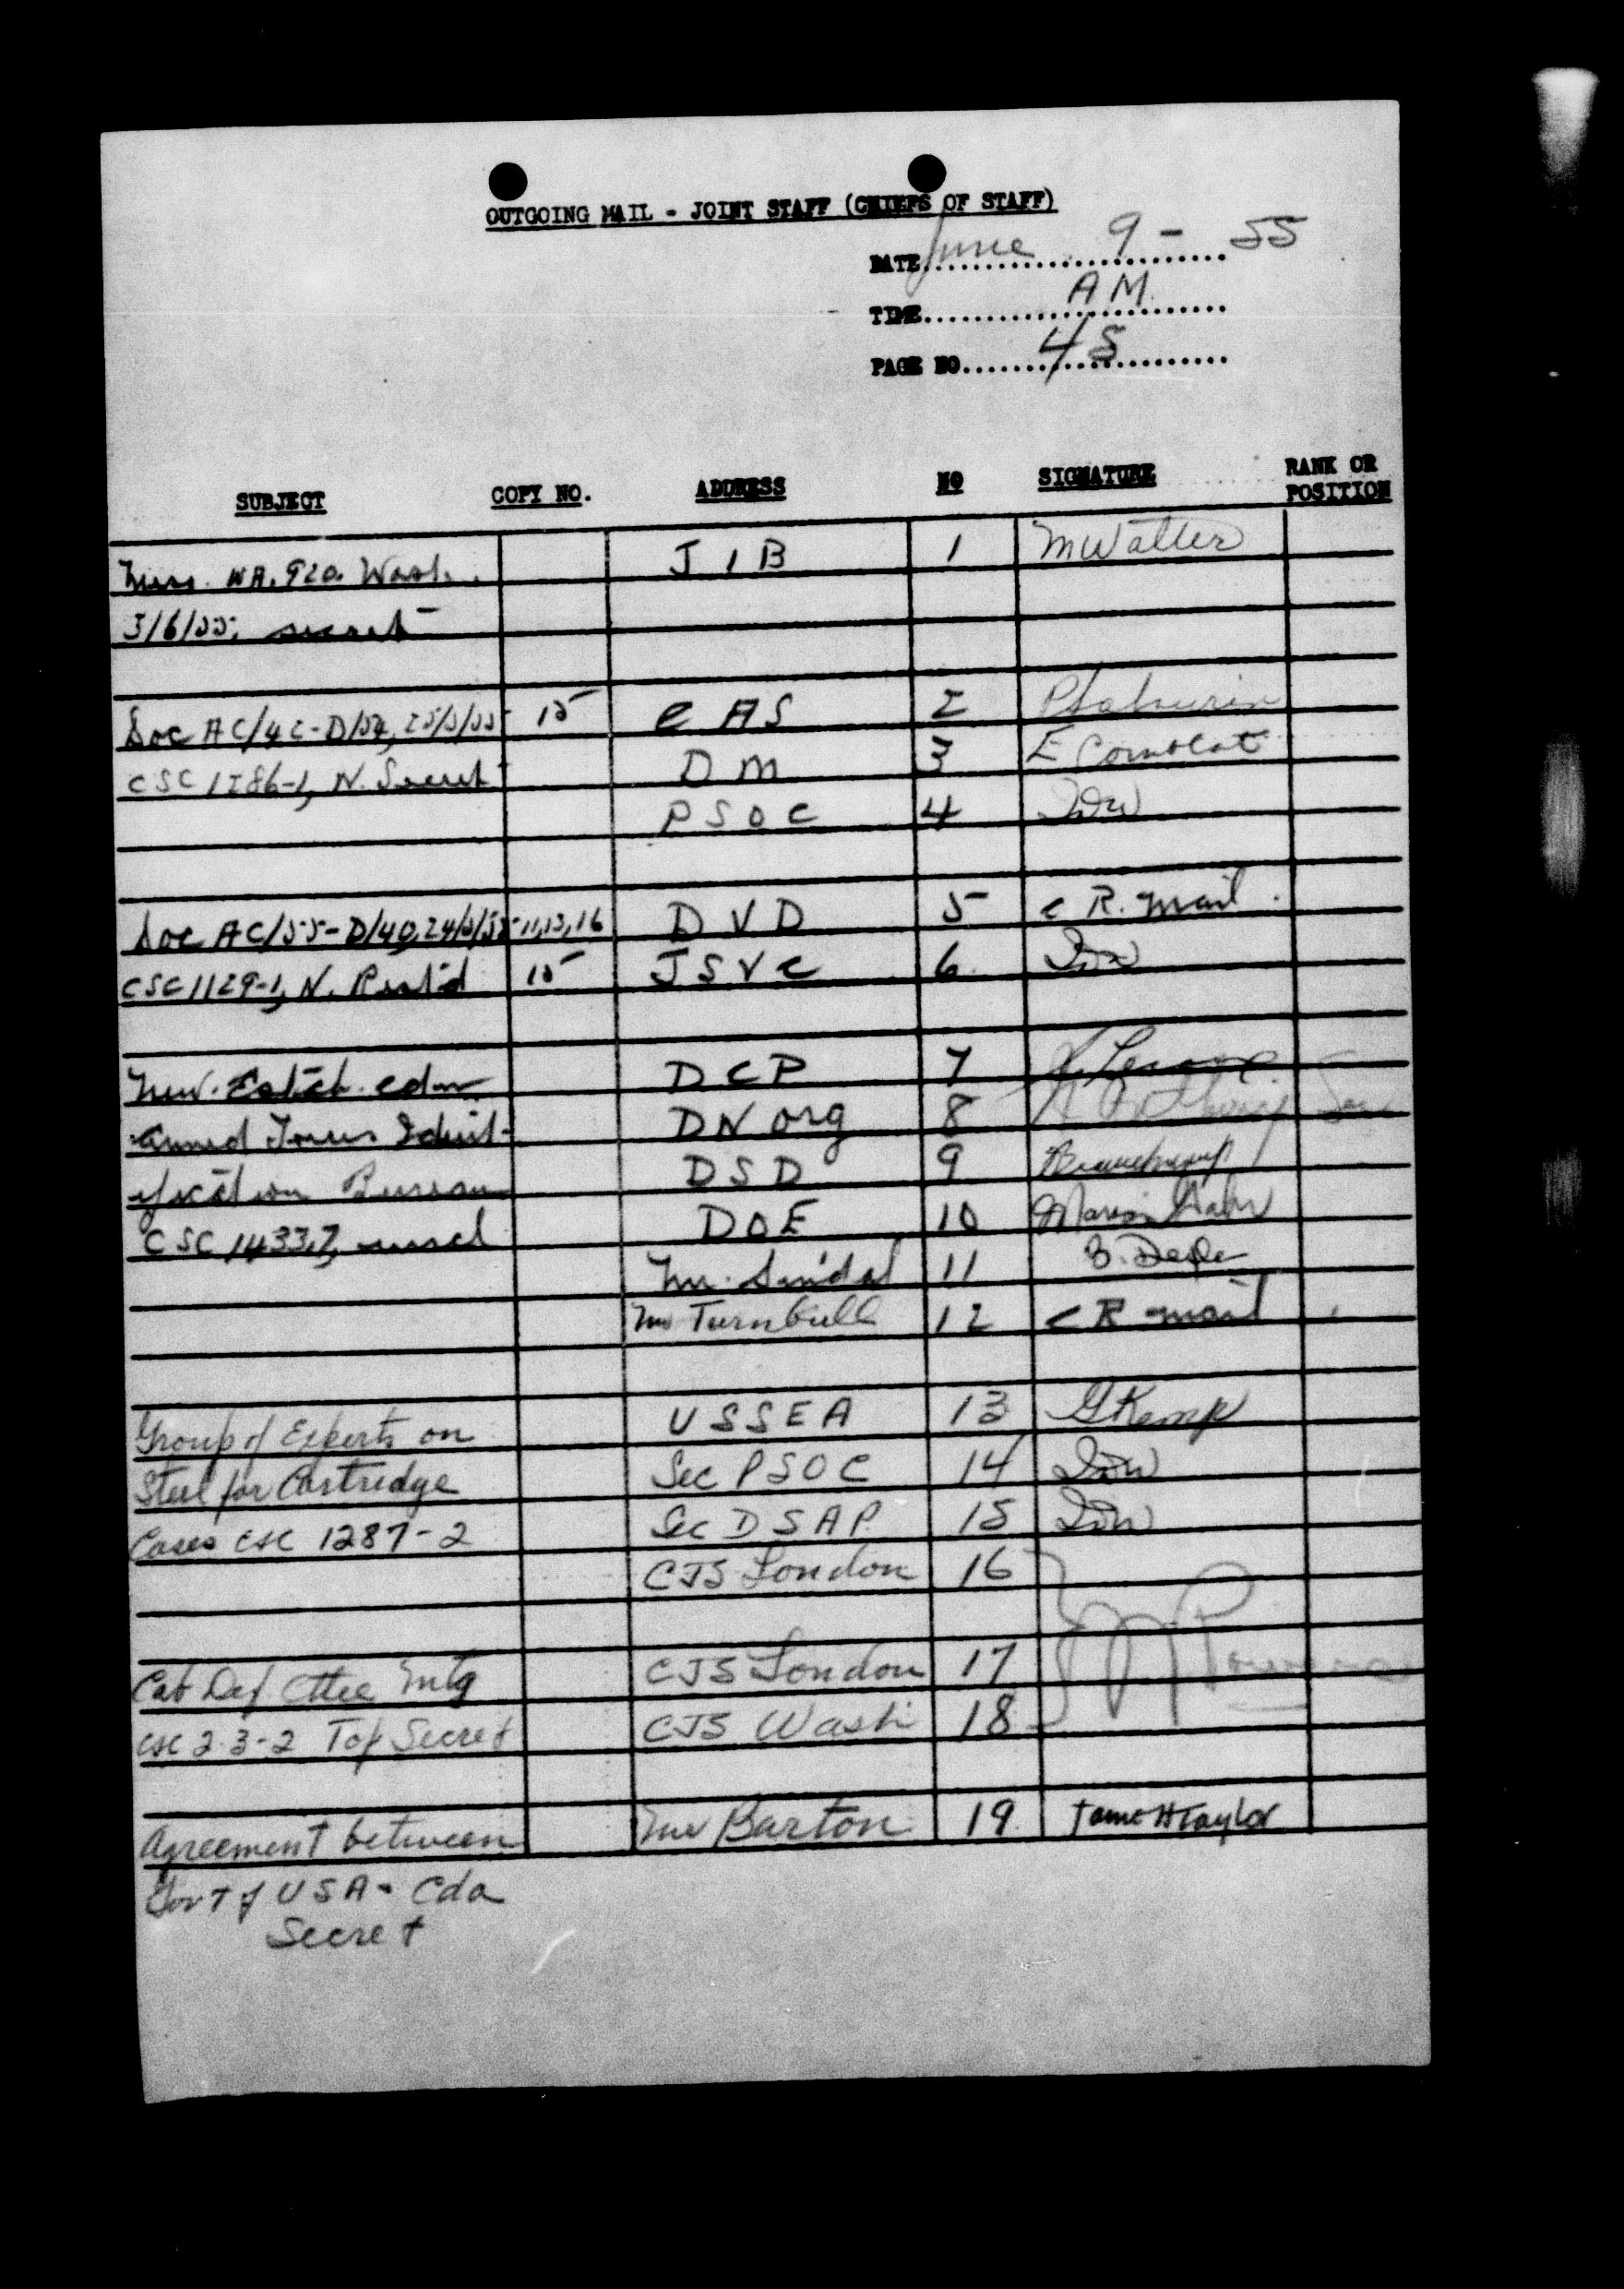 OUTGOING MAIL - JOINT STAFF (CHIEFS OF STAFF)
DATE June 9 - 55
TIME AM
PAGE NO 45
SUBJECT COPY NO. ADDRESS NO SIGNATURE RANK OR POSITION
WA. 920. Wash. J I B 1 MWalter
3/6/55, secret
Doc AC/42-D/54, 25/5/55 15 C A S 2
CSC 1286-1, N. Secret D M 3
P S O C 4
Doc AC/55-D/40, 24/5/55 11,13,16 D V D 5 C R. Mail
CSC 1129-1, N. Rest'd 15 J S V C 6
Estab. Cdn D C P 7
Armed Forces Ident- D N Org 8
ification Bureau D S D 9 Beauchamp
CSC 1433.7, D O E 10
11
Mr Turnbull 12 C R Mail
Group of Experts on U S S E A 13 GKemp
Steel for Cartridge Sec P S O C 14
Cases CSC 1287-2 Sec D S A P 15
CJS London 16
Cab Def Cttee Mtg CJS London 17
CSC 2-3-2 Top Secret CJS Wash 18
Agreement between Mr Barton 19 James H Taylor
Gov't of USA - Cda
Secret